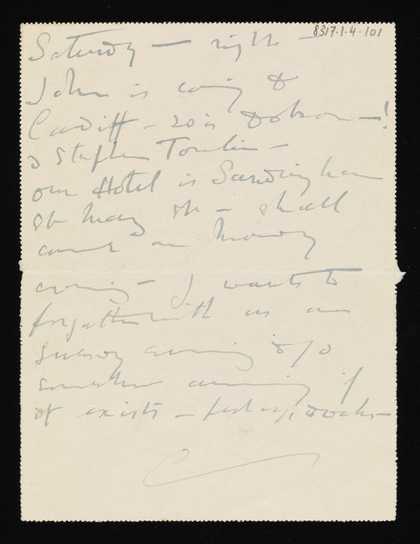 8317.1.4.101
Saturday — night —
John is coming to
Cardiff — so is Dobson — !
& Stephen Tomlin —
our Hotel is Sandringham
St Mary St — shall
come on Monday
evening — J wants to
us on
Sunday evening & go
somewhere amusing if
it exists —